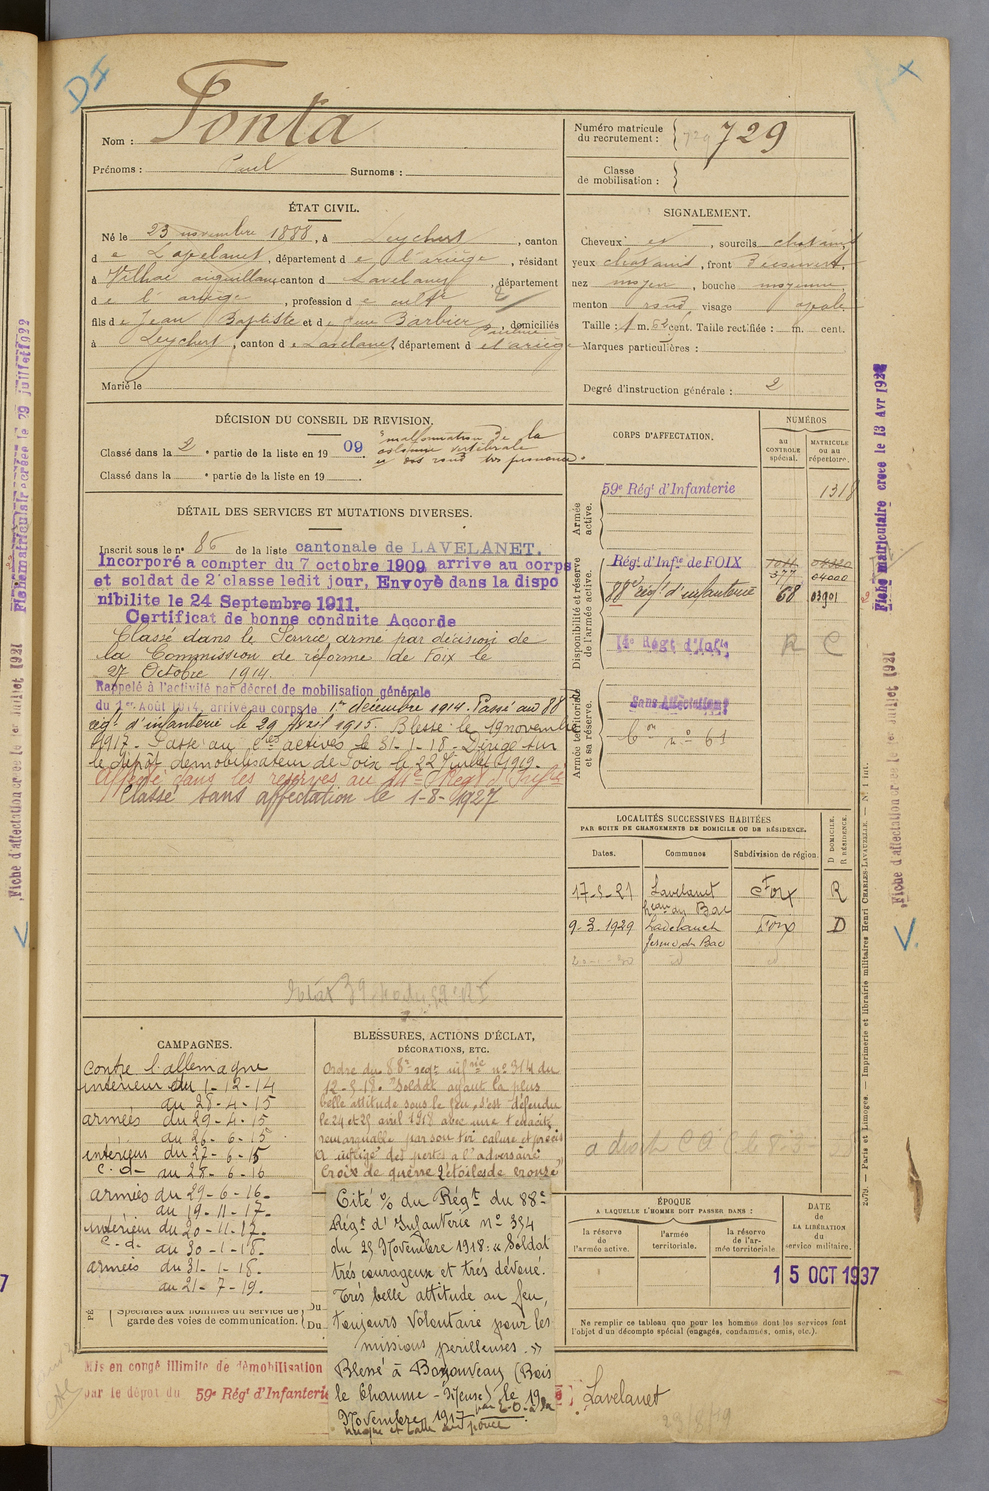 Nom : Fonta
Prénoms : Paul Surnoms :
Numéro matricule du recrutement : 729
Classe de mobilisation :
ÉTAT CIVIL.
Né le 23 novembre 1888, à Leychert, canton
de Lavelanet, département de l'ariège, résidant
à Vilhac aiguillanes canton d Lavelanet, département
de l'ariège, profession de cultr
fils de Jean Baptiste et de feue Barbier Pauline, domiciliés
à Leychert, canton de Lavelanet, département d el'ariège
Marié le
SIGNALEMENT.
Cheveux et, sourcils chatains
yeux chatains, front Découvert
nez moyen, bouche moyenne
menton rond, visage ovale
Taille : 1 m. 62 cent. Taille rectifiée : m. cent.
Marques particulières :
Degré d'instruction générale : 2
DÉCISION DU CONSEIL DE REVISION.
Classé dans la 2e partie de la liste en 1909.
malformation de la
colonne vertébrale
dos rond très prononcé.
Classé dans la e partie de la liste en 19
DÉTAIL DES SERVICES ET MUTATIONS DIVERSES.
Inscrit sous le n° 86 de la liste cantonale de LAVELANET.
Incorporé à compter du 7 octobre 1909, arrive au corps
et soldat de 2e classe ledit jour, Envoyé dans la dispo
nibilite le 24 Septembre 1911.
Certificat de bonne conduite Accorde
Classé dans le Service armé par décision de
la Commission de réforme de Foix le
27 Octobre 1914.
Rappelé à l'activité par décret de mobilisation générale
du 1er Août 1914, arrive au corps le 1er décembre 1914. Passé au 88e
régt d'infanterie le 29 Avril 1915. Blessé le 19 novembre
1917. Passé au Cies actives le 31-1-18. Dirigé sur
le dépôt démobilisateur de Foix le 22 Juillet 1919.
Affecté dans les réserves au 14e Régt d'Infie
Classé sans affectation le 1-8-1927
CORPS D'AFFECTATION.
NUMÉROS
au CONTRÔLE spécial.
MATRICULE ou au répertoire.
Armée active.
59e Régt d'Infanterie 1318
Disponibilité et réserve de l'armée active.
Régt d'Infie de FOIX
377 04000
88e régt d'infanterie 68 03901
14e Régt d'Infie R C
Armée territoriale et sa réserve.
Sans Affectation
Con n° 61
LOCALITÉS SUCCESSIVES HABITÉES
PAR SUITE DE CHANGEMENTS DE DOMICILE OU DE RÉSIDENCE.
Dates. Communes Subdivision de région. D DOMICILE. R RÉSIDENCE.
17-5-21 Lavelanet Foix R
9-3-1929 Lavelanet Foix D
CAMPAGNES.
Contre l'allemagne
intérieur du 1-12-14
au 28-4-15
armées du 29-4-15
au 26-6-15
intérieur du 27-6-15
C.d. au 28-6-16
armées du 29-6-16
au 19-11-17
intérieur du 20-11-17
C.d. au 30-1-18
armées du 31-1-18
au 21-7-19.
Spéciales aux hommes du service de
garde des voies de communication.
Du
Du
BLESSURES, ACTIONS D'ÉCLAT,
DÉCORATIONS, ETC.
Ordre du 88e regt infrie n° 314 du
12-5-18. "Soldat ayant la plus
belle attitude sous le feu, s'est défendu
le 24 et 25 avril 1918 avec une tenacité
remarquable par son tir calme et précis
a infligé des pertes à l'adversaire"
Croix de guerre 2 étoiles de bronze
Cité % du Régt du 88e
Régt d'Infanterie N° 354
du 25 Novembre 1918 : « Soldat
très courageux et très dévoué.
Très belle attitude au feu,
toujours volontaire pour les
missions périlleuses. »
Blessé à Bezonveaux (Bois
le Chaume - Meuse) le 19
Novembre 1917 par E.O. à la
nuque et balle au pouce
ÉPOQUE
A LAQUELLE L'HOMME DOIT PASSER DANS :
la réserve de l'armée active.
l'armée territoriale.
la réserve de l'armée territoriale.
DATE de LA LIBÉRATION du service militaire.
15 OCT 1937
Ne remplir ce tableau que pour les hommes dont les services font
l'objet d'un décompte spécial (engagés, condamnés, omis, etc.).
Mis en congé illimité de démobilisation
par le dépôt du 59e Régt d'Infanterie
Lavelanet
Fiche matriculaire créée le 13 Avr 1928
Fiche d'affectation créée le 1er juillet 1921
Fiche matriculaire créée le 29 juillet 1922
Fiche d'affectation créée le 1er juillet 1921
2579. — Paris et Limoges. — Imprimerie et librairie militaires Henri CHARLES-LAVAUZELLE. — N° 1 int.